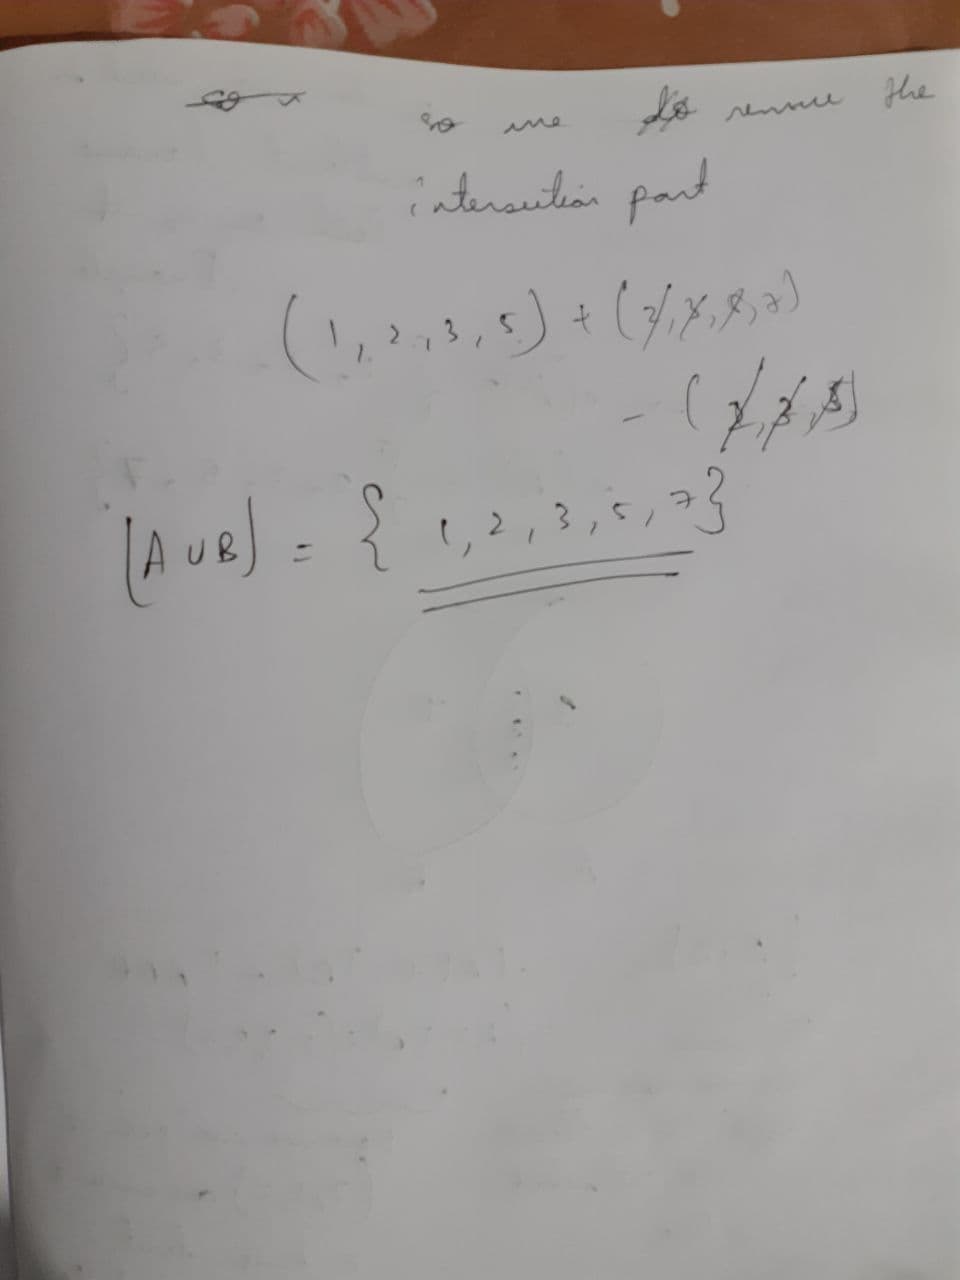 so we remove the
intersection part
(1, 2, 3, 5) + (2, 3, 5, 7)
- (2, 3, 5)
(A ∪ B) = { 1, 2, 3, 5, 7}